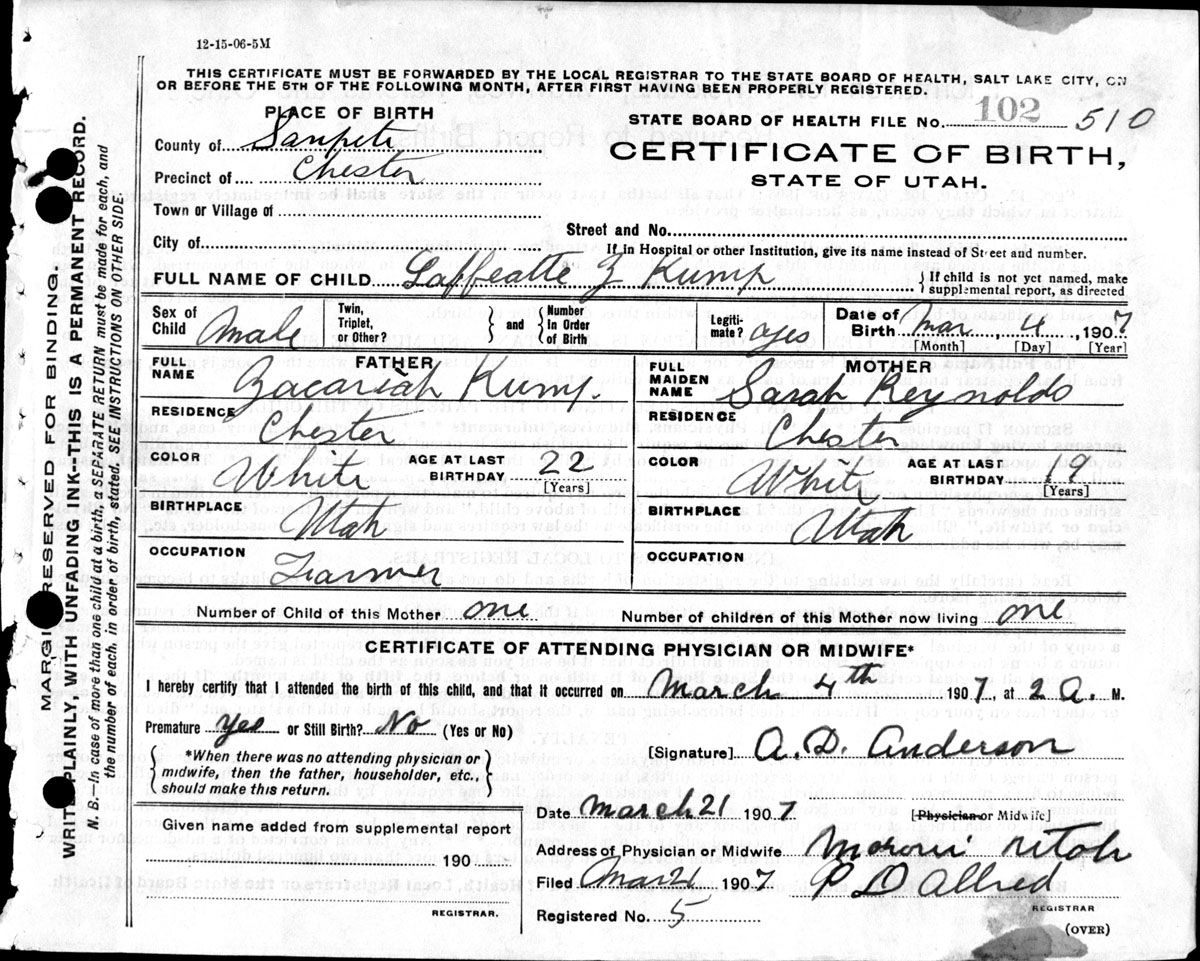 12-15-06-5M
THIS CERTIFICATE MUST BE FORWARDED BY THE LOCAL REGISTRAR TO THE STATE BOARD OF HEALTH, SALT LAKE CITY, ON
OR BEFORE THE 5TH OF THE FOLLOWING MONTH, AFTER FIRST HAVING BEEN PROPERLY REGISTERED.
PLACE OF BIRTH
STATE BOARD OF HEALTH FILE No. 102 510
County of Sanpete
CERTIFICATE OF BIRTH,
Precinct of Chester
STATE OF UTAH.
Town or Village of
Street and No.
City of
If in Hospital or other Institution, give its name instead of Street and number.
FULL NAME OF CHILD Laffeatte Z Kump
{ If child is not yet named, make
supplemental report, as directed
Sex of Child Male
Twin, Triplet, or Other?
and
Number In Order of Birth
Legiti-mate? yes
Date of Birth Mar 4 1907
[Month] [Day] [Year]
FATHER
FULL NAME Zacariah Kump.
RESIDENCE
Chester
COLOR White
AGE AT LAST BIRTHDAY 22
[Years]
BIRTHPLACE
Utah
OCCUPATION
Farmer
MOTHER
FULL MAIDEN NAME Sarah Reynolds
RESIDENCE
Chester
COLOR White
AGE AT LAST BIRTHDAY 19
[Years]
BIRTHPLACE
Utah
OCCUPATION
Number of Child of this Mother one
Number of children of this Mother now living one
CERTIFICATE OF ATTENDING PHYSICIAN OR MIDWIFE*
I hereby certify that I attended the birth of this child, and that it occurred on March 4th 1907, at 2 a. M.
Premature yes or Still Birth? No (Yes or No)
*When there was no attending physician or
midwife, then the father, householder, etc.,
should make this return.
[Signature] A. D. Anderson
Date March 21 1907
[Physician or Midwife]
Given name added from supplemental report
190
REGISTRAR.
Address of Physician or Midwife Moroni Utah
Filed Mar 21 1907 P D Allred
REGISTRAR
Registered No. 5
(OVER)
MARGIN RESERVED FOR BINDING.
WRITE PLAINLY WITH UNFADING INK--THIS IS A PERMANENT RECORD.
N. B.—In case of more than one child at a birth, a SEPARATE RETURN must be made for each, and
the number of each, in order of birth, stated. SEE INSTRUCTIONS ON OTHER SIDE.